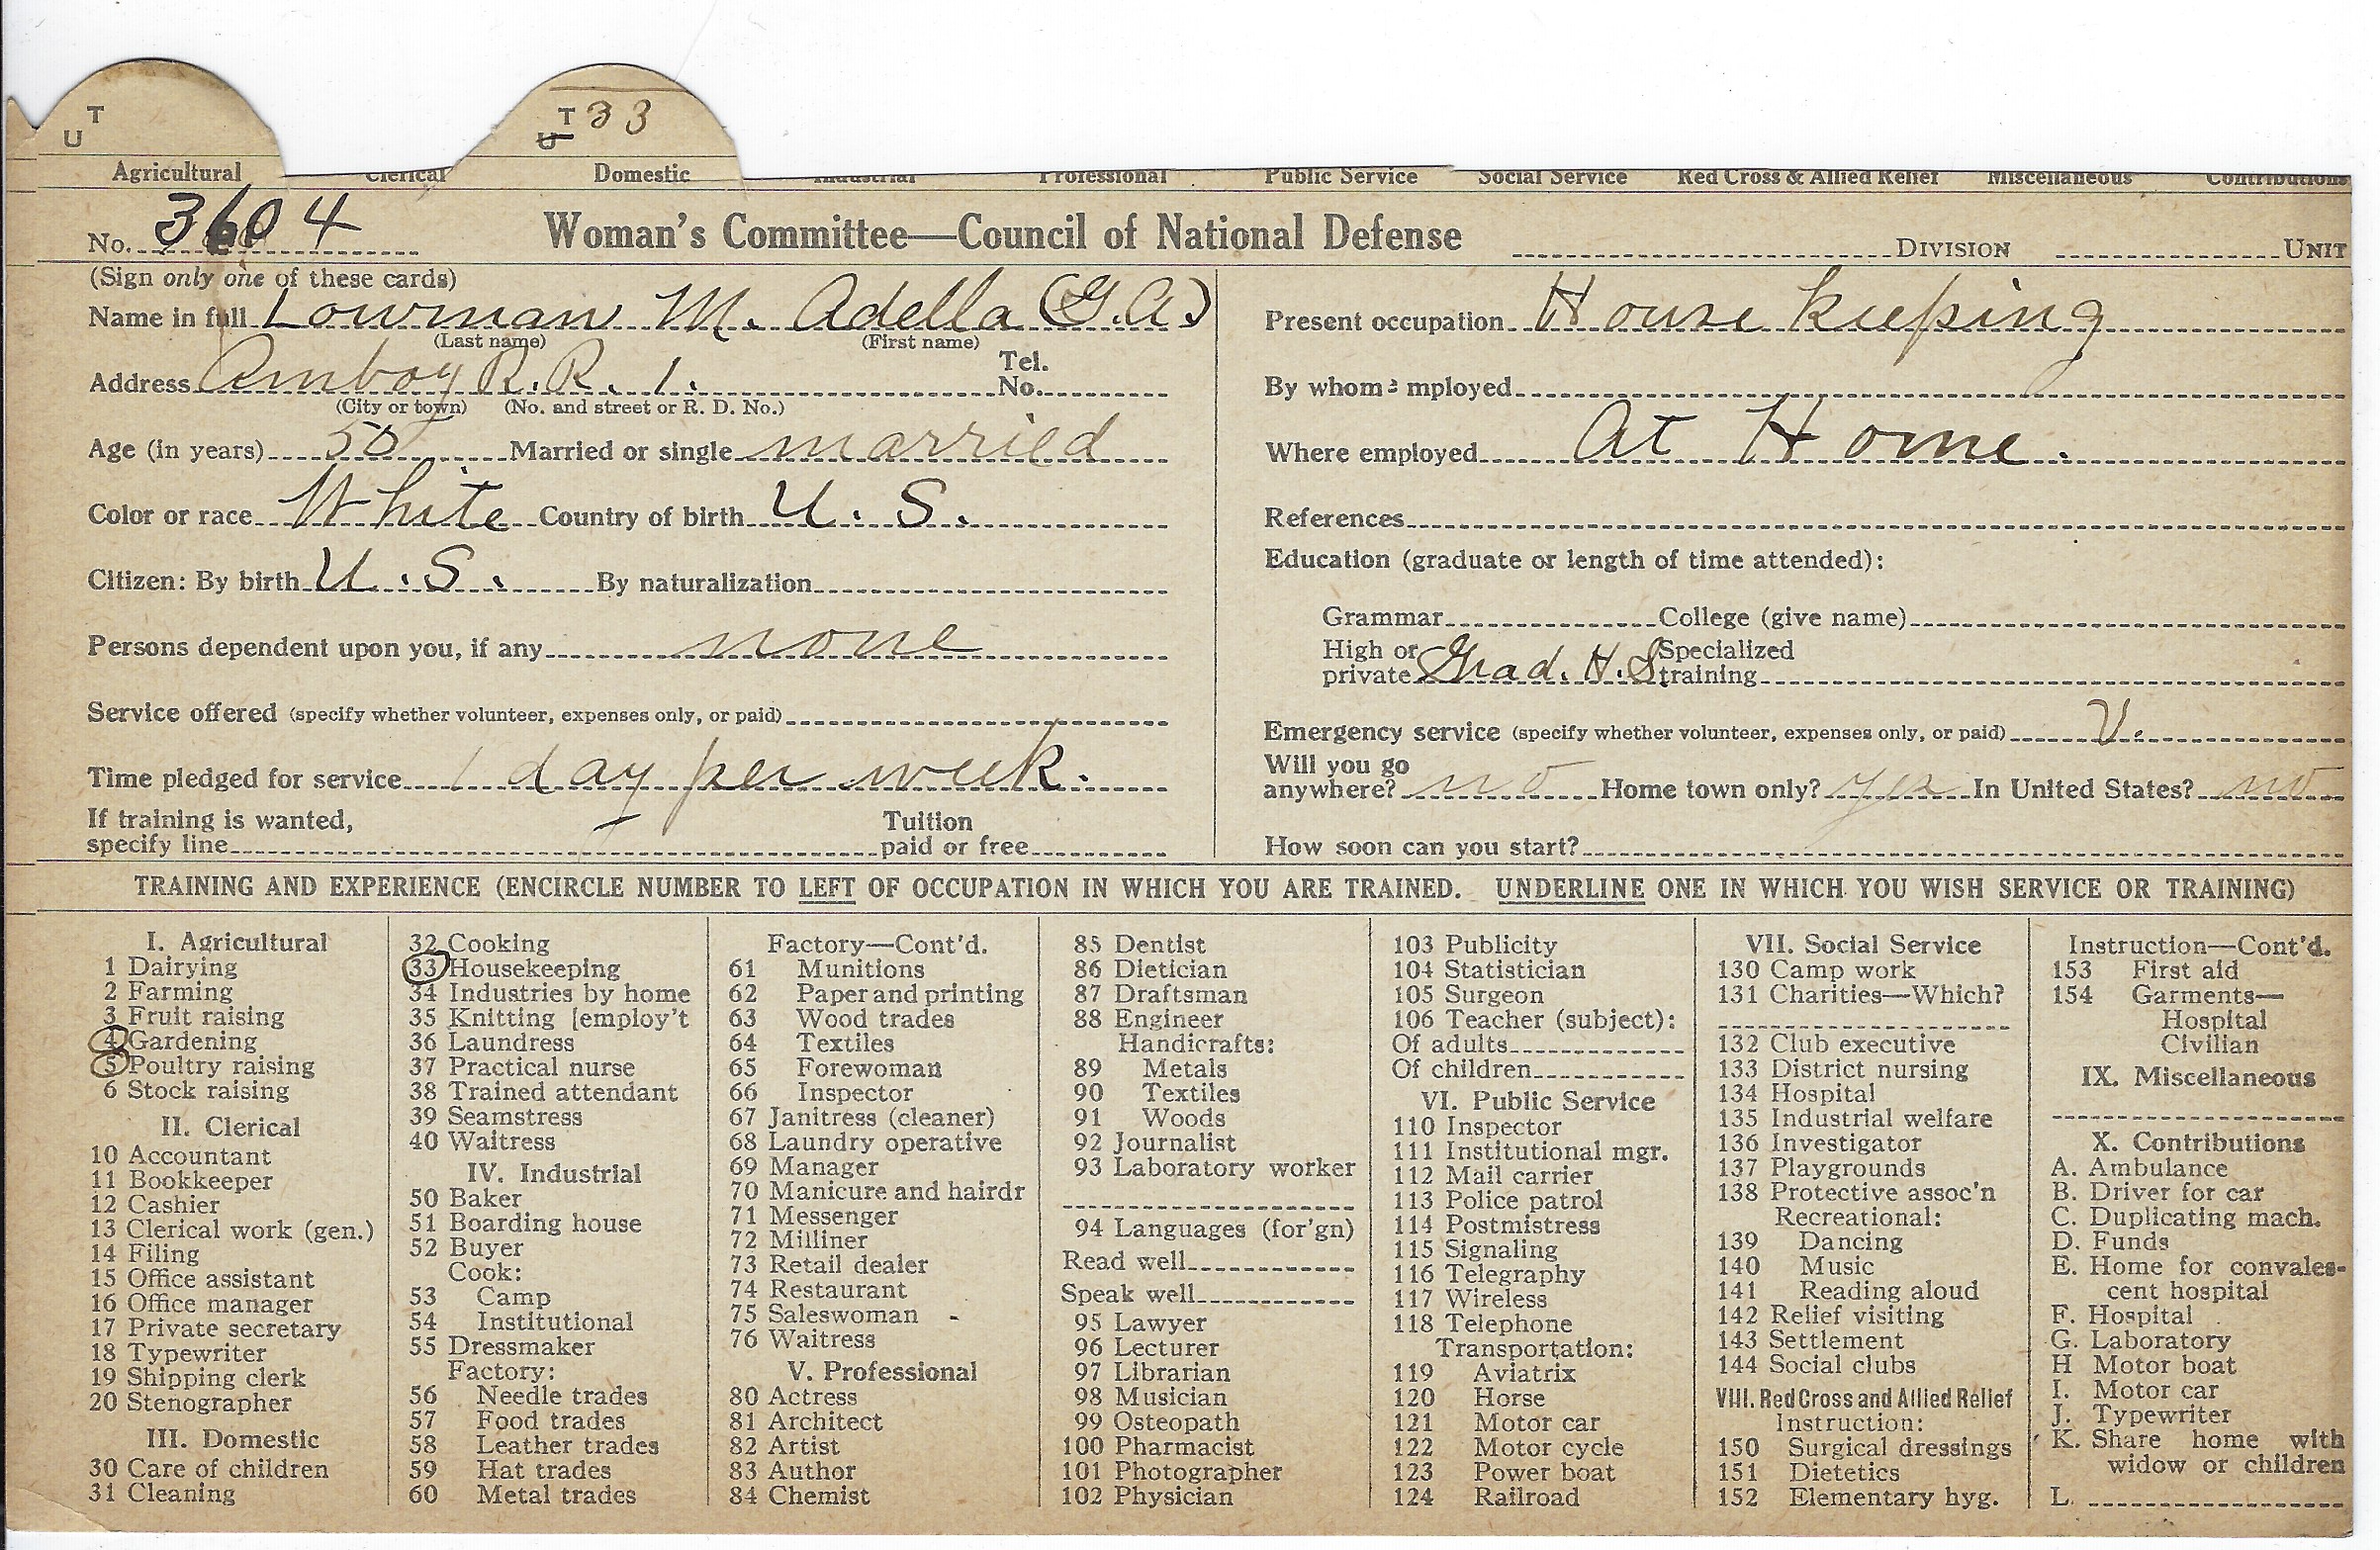 T
U
T 33
U
Agricultural Clerical Domestic Industrial Professional Public Service Social Service Red Cross & Allied Relief Miscellaneous Contributions
No. 3604 Woman's Committee—Council of National Defense DIVISION UNIT
(Sign only one of these cards)
Name in full Lowman M. Adella (G.A.)
(Last name) (First name)
Address Amboy R.R. 1. Tel. No.
(City or town) (No. and street or R. D. No.)
Age (in years) 50 Married or single married
Color or race White Country of birth U. S.
Citizen: By birth U.S. By naturalization
Persons dependent upon you, if any none
Service offered (specify whether volunteer, expenses only, or paid)
Time pledged for service 1 day per week.
If training is wanted, specify line Tuition paid or free
Present occupation House keeping
By whom employed
Where employed At Home.
References
Education (graduate or length of time attended):
Grammar College (give name)
High or private Grad. H.S. Specialized training
Emergency service (specify whether volunteer, expenses only, or paid) V.
Will you go anywhere? no Home town only? yes In United States? no
How soon can you start?
TRAINING AND EXPERIENCE (ENCIRCLE NUMBER TO LEFT OF OCCUPATION IN WHICH YOU ARE TRAINED. UNDERLINE ONE IN WHICH YOU WISH SERVICE OR TRAINING)
I. Agricultural
1 Dairying
2 Farming
3 Fruit raising
4 Gardening
5 Poultry raising
6 Stock raising
II. Clerical
10 Accountant
11 Bookkeeper
12 Cashier
13 Clerical work (gen.)
14 Filing
15 Office assistant
16 Office manager
17 Private secretary
18 Typewriter
19 Shipping clerk
20 Stenographer
III. Domestic
30 Care of children
31 Cleaning
32 Cooking
33 Housekeeping
34 Industries by home
35 Knitting [employ't
36 Laundress
37 Practical nurse
38 Trained attendant
39 Seamstress
40 Waitress
IV. Industrial
50 Baker
51 Boarding house
52 Buyer
Cook:
53 Camp
54 Institutional
55 Dressmaker
Factory:
56 Needle trades
57 Food trades
58 Leather trades
59 Hat trades
60 Metal trades
Factory—Cont'd.
61 Munitions
62 Paper and printing
63 Wood trades
64 Textiles
65 Forewoman
66 Inspector
67 Janitress (cleaner)
68 Laundry operative
69 Manager
70 Manicure and hairdr
71 Messenger
72 Milliner
73 Retail dealer
74 Restaurant
75 Saleswoman
76 Waitress
V. Professional
80 Actress
81 Architect
82 Artist
83 Author
84 Chemist
85 Dentist
86 Dietician
87 Draftsman
88 Engineer
Handicrafts:
89 Metals
90 Textiles
91 Woods
92 Journalist
93 Laboratory worker
94 Languages (for'gn)
Read well
Speak well
95 Lawyer
96 Lecturer
97 Librarian
98 Musician
99 Osteopath
100 Pharmacist
101 Photographer
102 Physician
103 Publicity
104 Statistician
105 Surgeon
106 Teacher (subject):
Of adults
Of children
VI. Public Service
110 Inspector
111 Institutional mgr.
112 Mail carrier
113 Police patrol
114 Postmistress
115 Signaling
116 Telegraphy
117 Wireless
118 Telephone
Transportation:
119 Aviatrix
120 Horse
121 Motor car
122 Motor cycle
123 Power boat
124 Railroad
VII. Social Service
130 Camp work
131 Charities—Which?
132 Club executive
133 District nursing
134 Hospital
135 Industrial welfare
136 Investigator
137 Playgrounds
138 Protective assoc'n
Recreational:
139 Dancing
140 Music
141 Reading aloud
142 Relief visiting
143 Settlement
144 Social clubs
VIII. Red Cross and Allied Relief
Instruction:
150 Surgical dressings
151 Dietetics
152 Elementary hyg.
Instruction—Cont'd.
153 First aid
154 Garments—
Hospital
Civilian
IX. Miscellaneous
X. Contributions
A. Ambulance
B. Driver for car
C. Duplicating mach.
D. Funds
E. Home for convales-
cent hospital
F. Hospital
G. Laboratory
H Motor boat
I. Motor car
J. Typewriter
K. Share home with
widow or children
L.